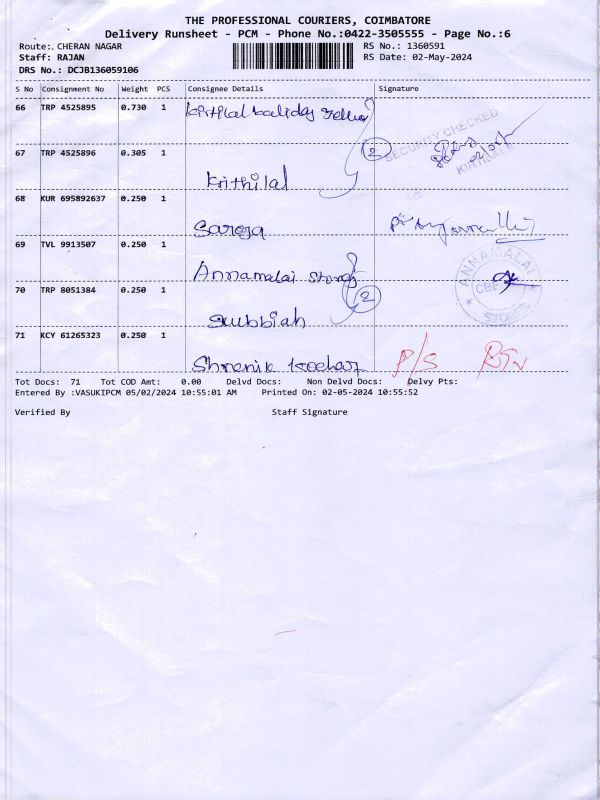 THE PROFESSIONAL COURIERS, COIMBATORE
Delivery Runsheet - PCM - Phone No.:0422-3505555 - Page No.:6
Route: CHERAN NAGAR RS No.: 1360591
Staff: RAJAN RS Date: 02-May-2024
DRS No.: DCJB136059106
S No Consignment No Weight PCS Consignee Details Signature
66 TRP 4525895 0.730 1 Kirthilal
SECURITY CHECKED
KIRTHILAL
67 TRP 4525896 0.305 1 2
Krithilal
68 KUR 695892637 0.250 1
Saroja
69 TVL 9913507 0.250 1
Annamalai Stores
ANNAMALAI
CBE
STORES
70 TRP 8051384 0.250 1 2
Subbiah
71 KCY 61265323 0.250 1
Shrenik Kochar P/S
Tot Docs: 71 Tot COD Amt: 0.00 Delvd Docs: Non Delvd Docs: Delvy Pts:
Entered By :VASUKIPCM 05/02/2024 10:55:01 AM Printed On: 02-05-2024 10:55:52
Verified By Staff Signature